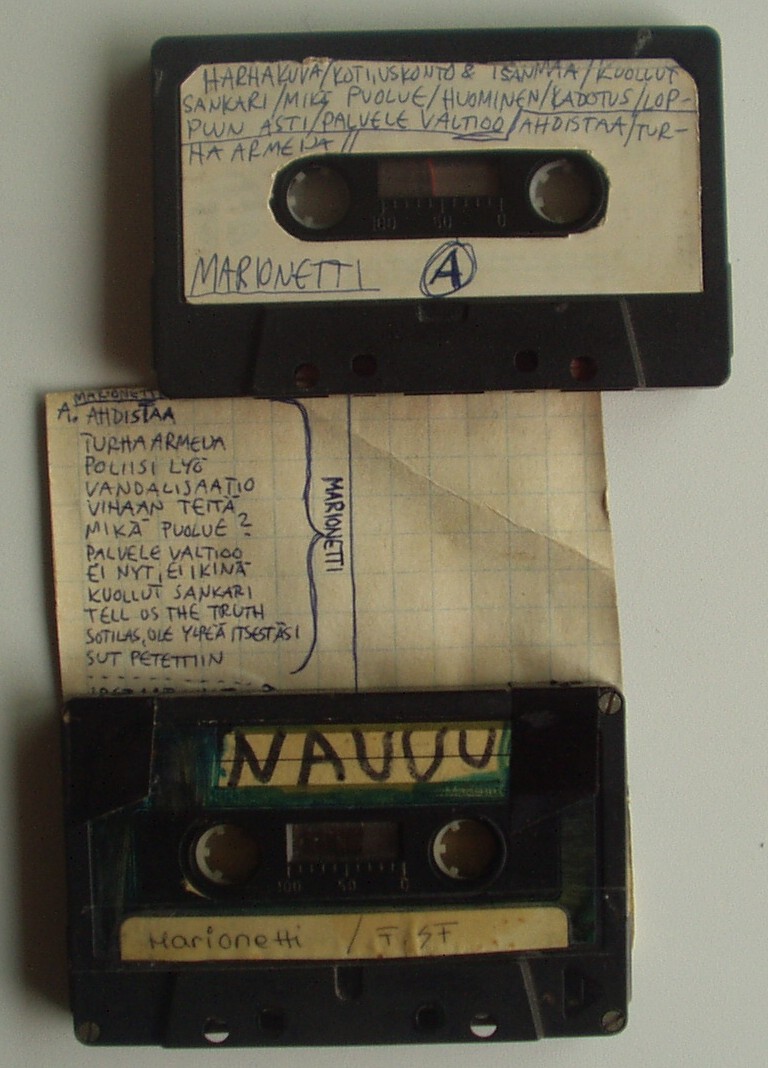 HARHAKUVA/KOTI,USKONTO & ISÄNMAA/KUOLLUT
SANKARI/MIKÄ PUOLUE/HUOMINEN/KADOTUS/LOP-
PUUN ASTI/PALVELE VALTIOO/AHDISTAA/TUR-
HA ARMEIJA//
100 50 0
MARIONETTI A
MARIONETTI
A. AHDISTAA
TURHA ARMEIJA
POLIISI LYÖ
VANDALISAATIO
VIHAAN TEITÄ
MIKÄ PUOLUE?
PALVELE VALTIOO
EI NYT, EI IKINÄ
KUOLLUT SANKARI
TELL US THE TRUTH
SOTILAS, OLE YLPEÄ ITSESTÄSI
SUT PETETTIIN
MARIONETTI
NAUUU
100 50 0
Marionetti / T. ST